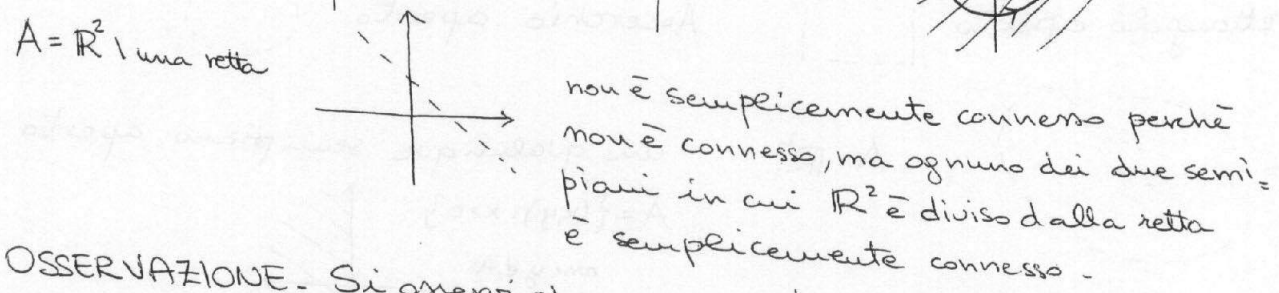 A = ℝ² \ una retta
non ē semplicemente connesso perchē
non ē connesso, ma ognuno dei due semi=
piani in cui ℝ² ē diviso dalla retta
ē semplicemente connesso.
OSSERVAZIONE. Si